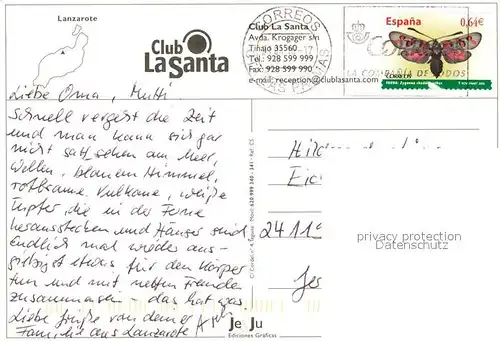 Lanzarote
Club
LaSanta
Club La Santa
Avda. Krogager s/n
Tinajo 35560
Tel.: 928 599 999
Fax: 928 599 990
e-mail: reception@clublasanta.com
CORREOS
España
0,64€
CORREOS
Liebe Oma, Mutti
Schnell vergeht die Zeit
und man kann sich gar
nicht satt sehen am Meer,
Wellen, blauem Himmel,
rotbraune Vulkane, weiße
Tupfer die in der Ferne
herausstechen und Häuser sind
Endlich mal wieder aus-
giebigst etwas für den Körper
tun und mit netten Freunden
zusammen das hat was.
Liebe Grüße von deiner
Familie aus Lanzarote
Hil
Eic
2411
Jes
privacy protection
Datenschutz
Je Ju
Ediciones Gráficas